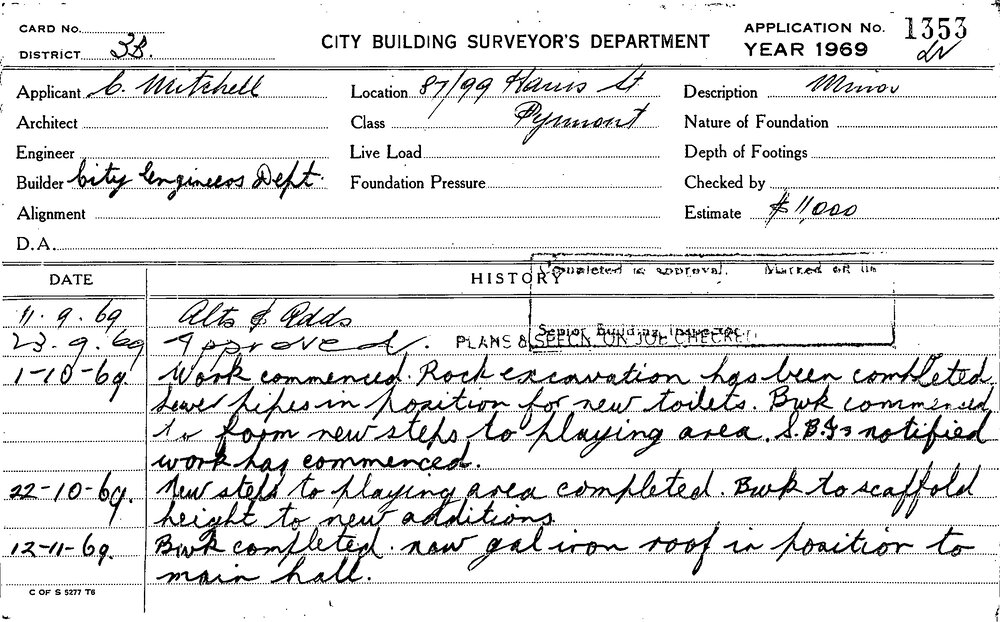 CARD No. APPLICATION No. 1353
DISTRICT 3B. CITY BUILDING SURVEYOR'S DEPARTMENT YEAR 1969
Applicant C. Mitchell Location 87/99 Harris St Description Minor
Architect Class Pyrmont Nature of Foundation
Engineer Live Load Depth of Footings
Builder City Engineers Dept. Foundation Pressure Checked by
Alignment Estimate $11,000
D.A.
Completed as approval. Marked off in
DATE HISTORY
11.9.69 Alts & Adds
Senior Building Inspector
23.9.69 Approved. PLANS & SPECN. ON JOB CHECKED
1-10-69. Work commenced. Rock excavation has been completed.
Sewer pipes in position for new toilets. Bwk commenced
to form new steps to playing area. S.B.I. notified
work has commenced.
22-10-69. New steps to playing area completed. Bwk to scaffold
height to new additions
12-11-69. Bwk completed. new gal iron roof in position to
main hall.
C OF S 5277 T6